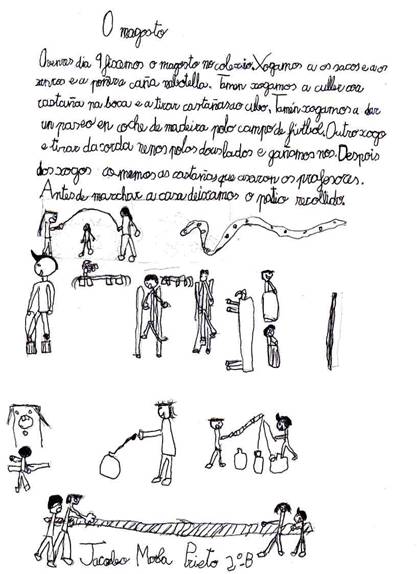 O magosto
O venres día 9 fixemos o magosto no colexio. Xogamos a os sacos e a os
zancos e a poñer a caña na botella. Tamén xogamos a culler coa
castaña na boca e a tirar castañas ao cubo. Tamén xogamos a dar
un paseo en coche de madeira polo campo de fútbol. Outro xogo
e tirar da corda renos polos dous lados e gañamos nos. Despois
dos xogos comemos as castañas que asaron os profesores.
Antes de marchar a casa deixamos o patio recollido.
Jacobo Mora Prieto 2º-B